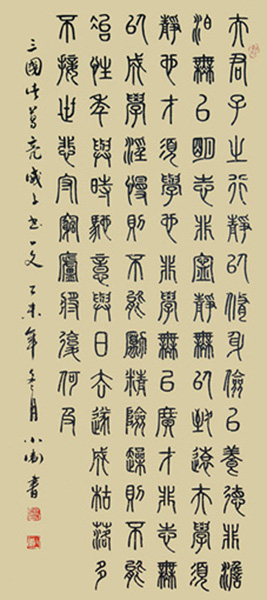 夫君子之行靜以脩身儉以養德非澹
泊無以明志非寧靜無以致遠夫學須
靜也才須學也非學無以廣才非志無
以成學淫慢則不能勵精險躁則不能
治性年與時馳意與日去遂成枯落多
不接世悲守窮廬將復何及
三國諸葛亮誡子書一文 乙未年冬月 小 書